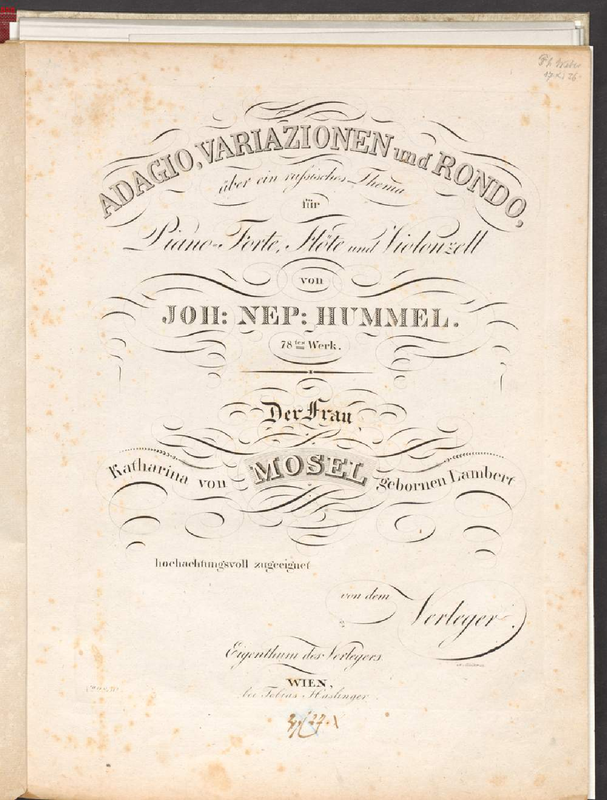 ADAGIO, VARIAZIONEN und RONDO,
über ein russisches Thema
für
Piano-Forte, Flöte und Violonzell
von
JOH: NEP: HUMMEL.
78tes Werk.
Der Frau
Katharina von MOSEL gebornen Lambert
hochachtungsvoll zugeeignet
von dem Verleger.
Eigenthum des Verlegers.
WIEN,
bei Tobias Haslinger